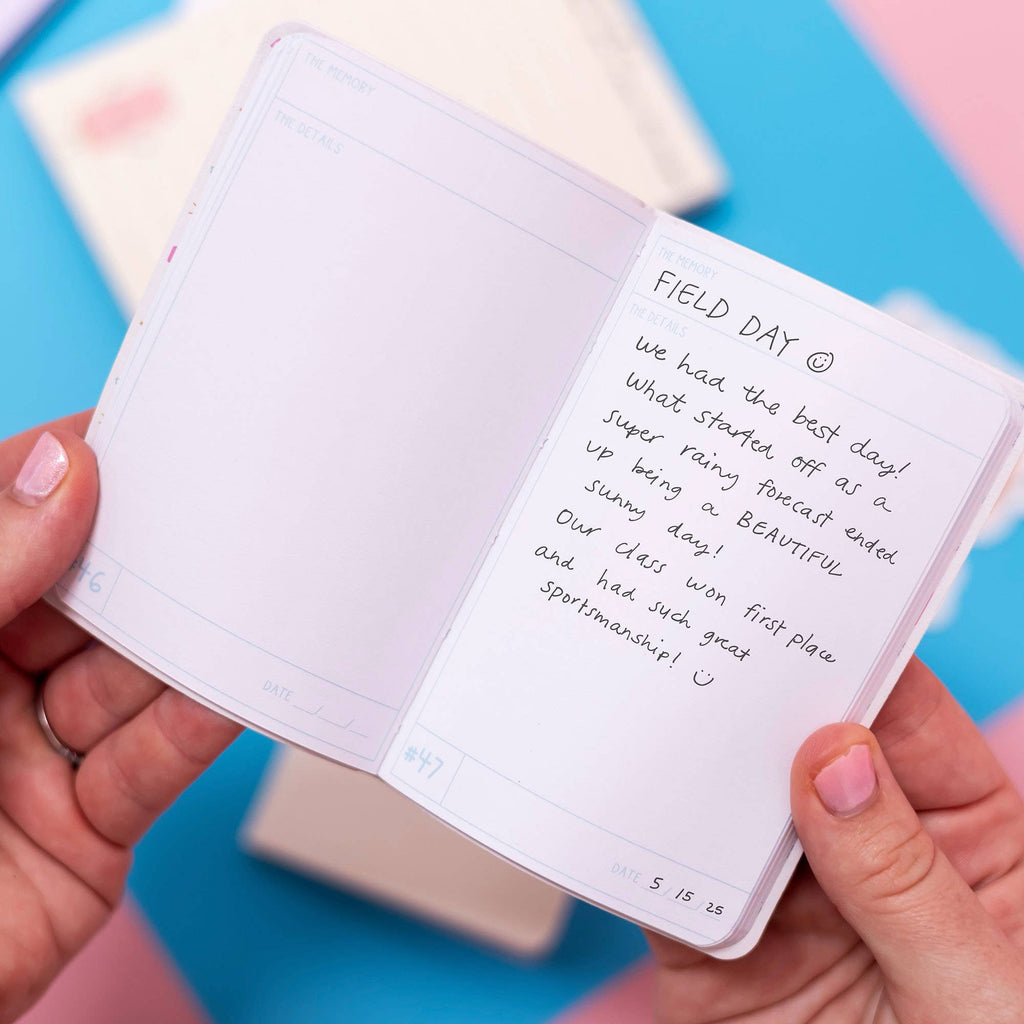 THE MEMORY
THE DETAILS
#46
DATE __/__/__
THE MEMORY
FIELD DAY ☺
THE DETAILS
We had the best day!
What started off as a
super rainy forecast ended
up being a BEAUTIFUL
sunny day!
Our class won first place
and had such great
sportsmanship! ☺
#47
DATE 5/15/25